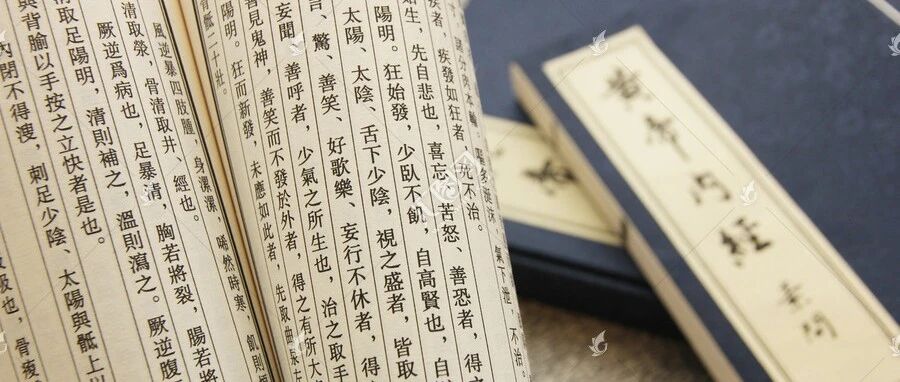 諸分肉本輸
氣下泄，不治
疾發如狂者，死不治。
始生，先自悲也，喜忘、苦怒、善恐者，得
陽明。狂始發，少臥不飢，自高賢也，自
太陽、太陰、舌下少陰，視之盛者，皆取
言、驚、善笑、好歌樂、妄行不休者，得
妄聞，善呼者，少氣之所生也，治之取手
善見鬼神，善笑而不發於外者，得之有所大
陽明。狂而新發，未應如此者，先取曲泉左
骶二十壯。
風逆暴四肢腫，身漯漯，唏然時寒，飢則
清取滎，骨清取井、經也。
厥逆爲病也，足暴清，胸若將裂，腸若
清取足陽明，清則補之，溫則瀉之。厥逆腹
與背腧以手按之立快者是也。
內閉不得溲，刺足少陰、太陽與骶上以
也，骨痠
黃帝內經
素問